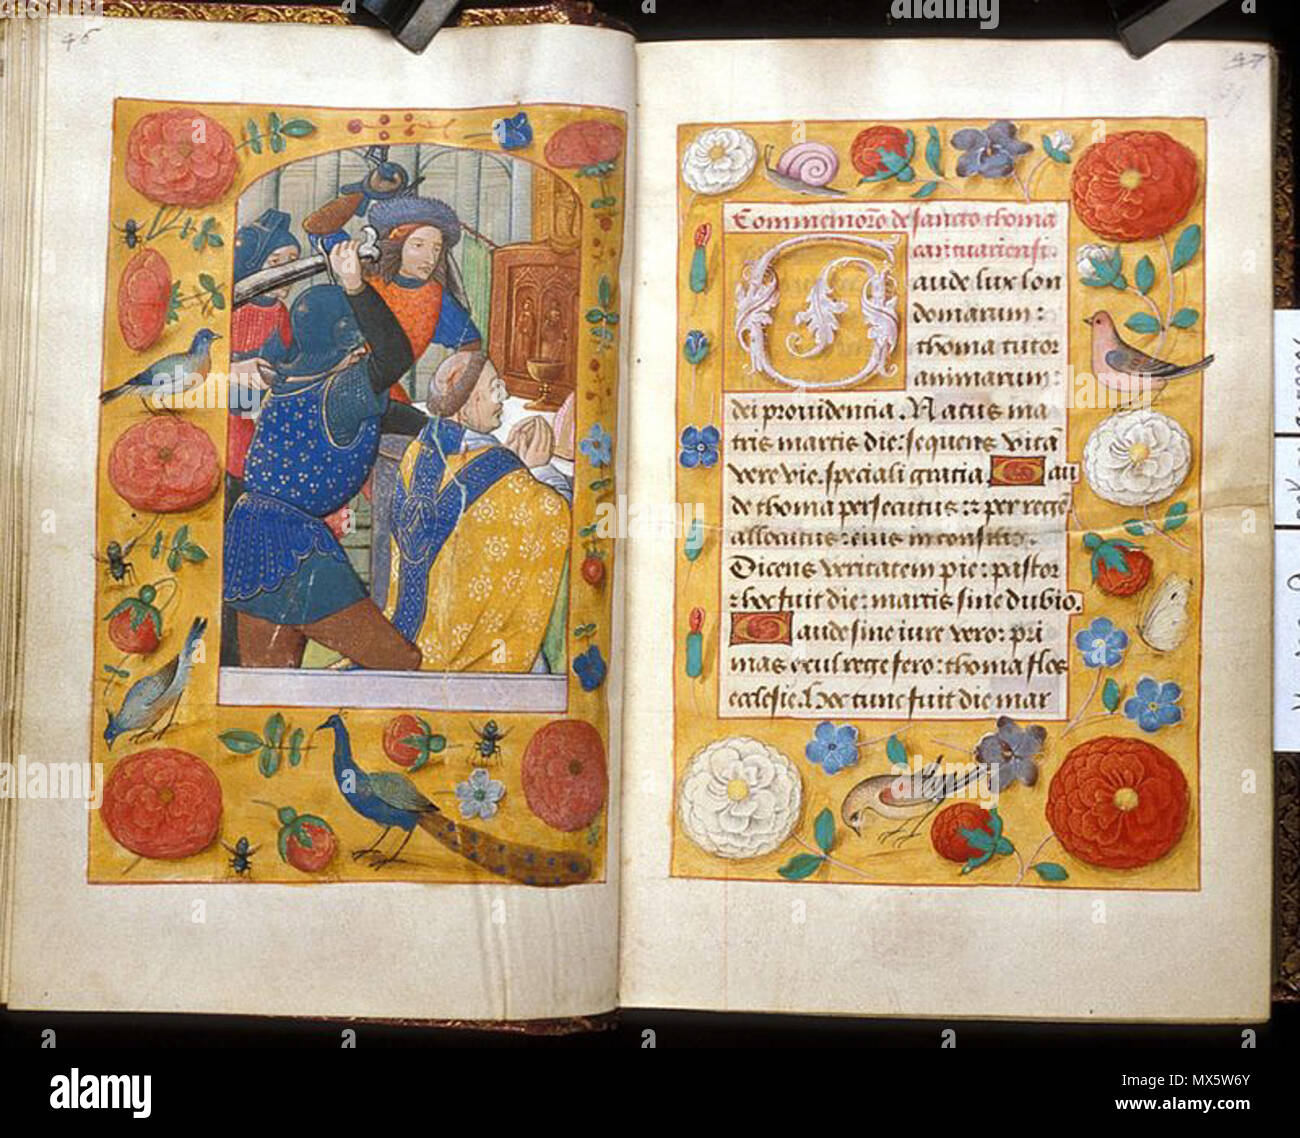 46
47
Commemoro de sancto thoma
cantuariensi.
Gaude lux lon
domarum:
thoma tutor
animarum:
dei providentia. Natus ma
tris martis die: sequens vitā
vere vie. speciali gratia Gau
de thoma persecutus: et per rege
allocutus: eius in consilio.
Dicens veritatem pie: pastor
hoc fuit die: martis sine dubio.
Gaude sine iure vero: pri
mas exul rege fero: thoma flos
ecclesie. Hoc tunc fuit die mar
a alamy stock photo
alamy
Image ID: MX5W6Y
www.alamy.com